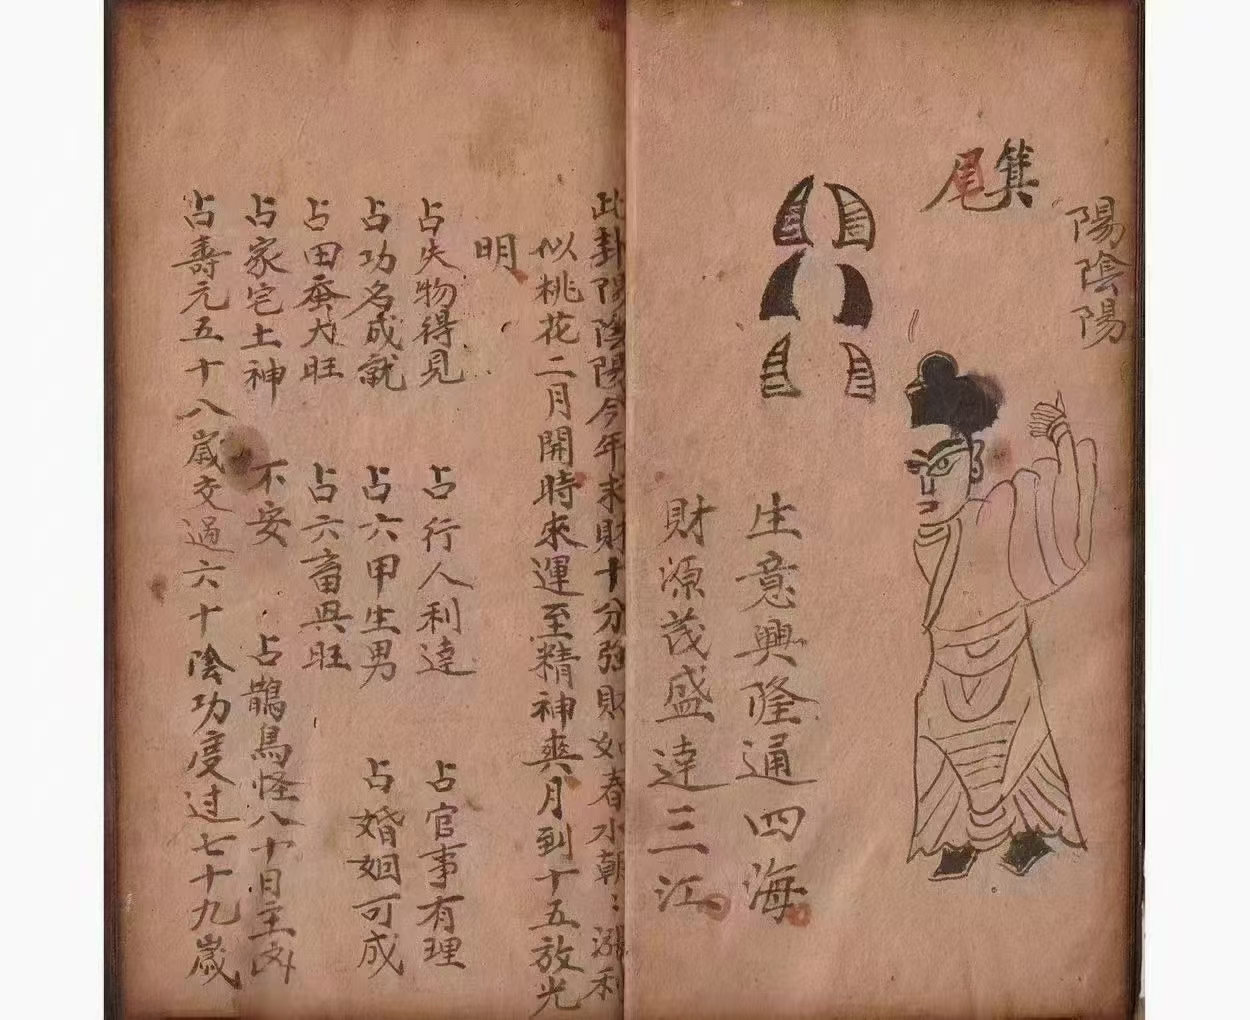 陽陰陽
箕
尾
生意興隆通四海
財源茂盛達三江
此卦陽陰陽今年求財十分強財如春水朝：漲利
似桃花二月開時來運至精神爽月到十五放光
明
占失物得見 占行人利達 占官事有理
占功名成就 占六甲生男 占婚姻可成
占田蚕大旺 占六畜興旺
占家宅土神不安 占鵲鳥怪八十月主凶
占壽元五十八歲交過六十陰功度过七十九歲